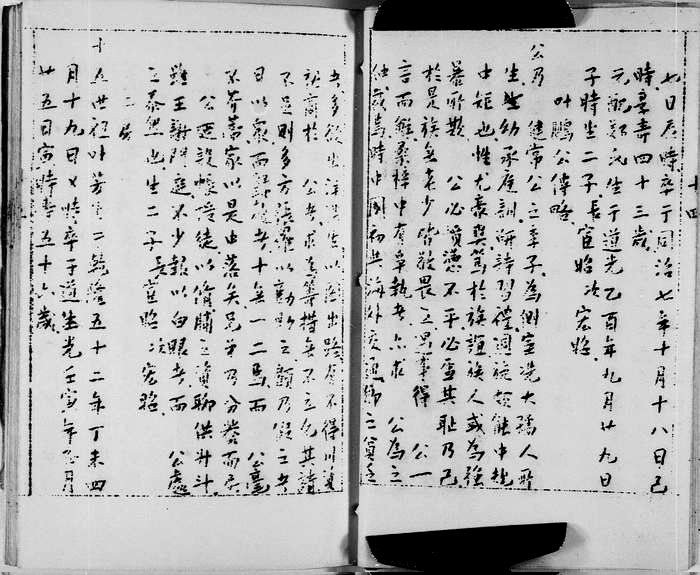 十四
七日辰時卒于同治七年十月十八日巳
時享壽四十三歲
元配鄭氏生于道光乙酉年九月廿九日
子時生二子長宦始次宏始
叶鵬公傳略
公乃健常公之季子為側室洗大孺人所
生也幼承庭訓研詩習禮周旋頗能中規
中矩也性尤豪爽篤於族誼族人或為強
暴所欺 公必憤憑不平必雪其恥乃已
於是族無老少皆敬畏之男事得 公一
言而解桑梓中有爭執者亦求 公為之
仲裁焉時中國初與海外交通鄉之貧乏
者多欲出洋謀生以圖出路有不得川資
初商於 公者求其籌措無不立允其請
不足則多方張羅以勸助之顧乃假之者
日以衆而歸還者十無一二焉而 公毫
不芥蒂家以是中落矣兄弟乃分爨而居
公西設帳授徒以脩脯之資聊供升斗
雖王謝門庭不少報以白眼者而 公處
之泰然也生二子長宦始次宏始
二房
十五世祖叶芳生于乾隆五十二年丁未四
月十九日 時卒于道光壬寅年 月
廿五日寅時壽五十六歲